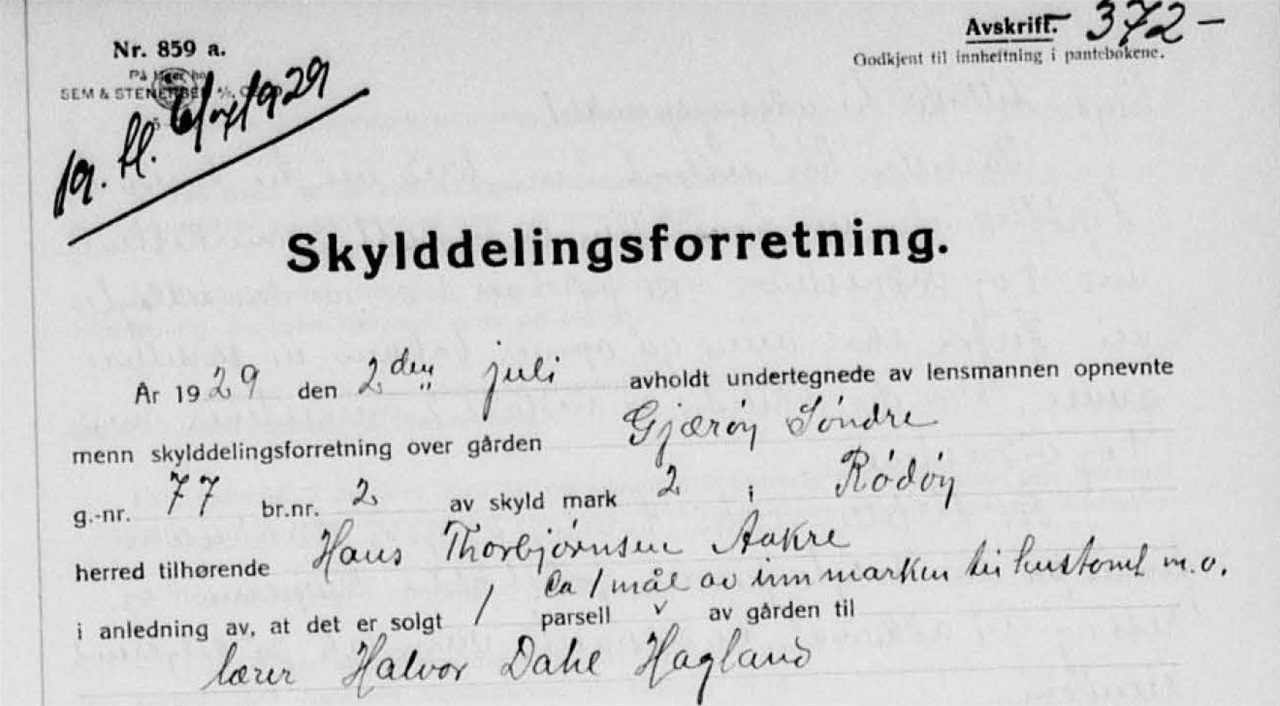 Avskrift. 372 –
Nr. 859 a.
Godkjent til innheftning i pantebøkene.
På lager ho
SEM & STENERSEN A/S, O
1929
Skylddelingsforretning.
År 1929 den 2den juli avholdt undertegnede av lensmannen opnevnte
menn skylddelingsforretning over gården Gjærøy Söndre
g.-nr. 77 br.nr. 2 av skyld mark 2 i Rödöy
herred tilhørende Hans Thorbjörnsen Aakre
Ca 1 mål av innmarken til hustomt m.v.
i anledning av, at det er solgt 1 parsell v av gården til
lærer Halvor Dahl Hagland